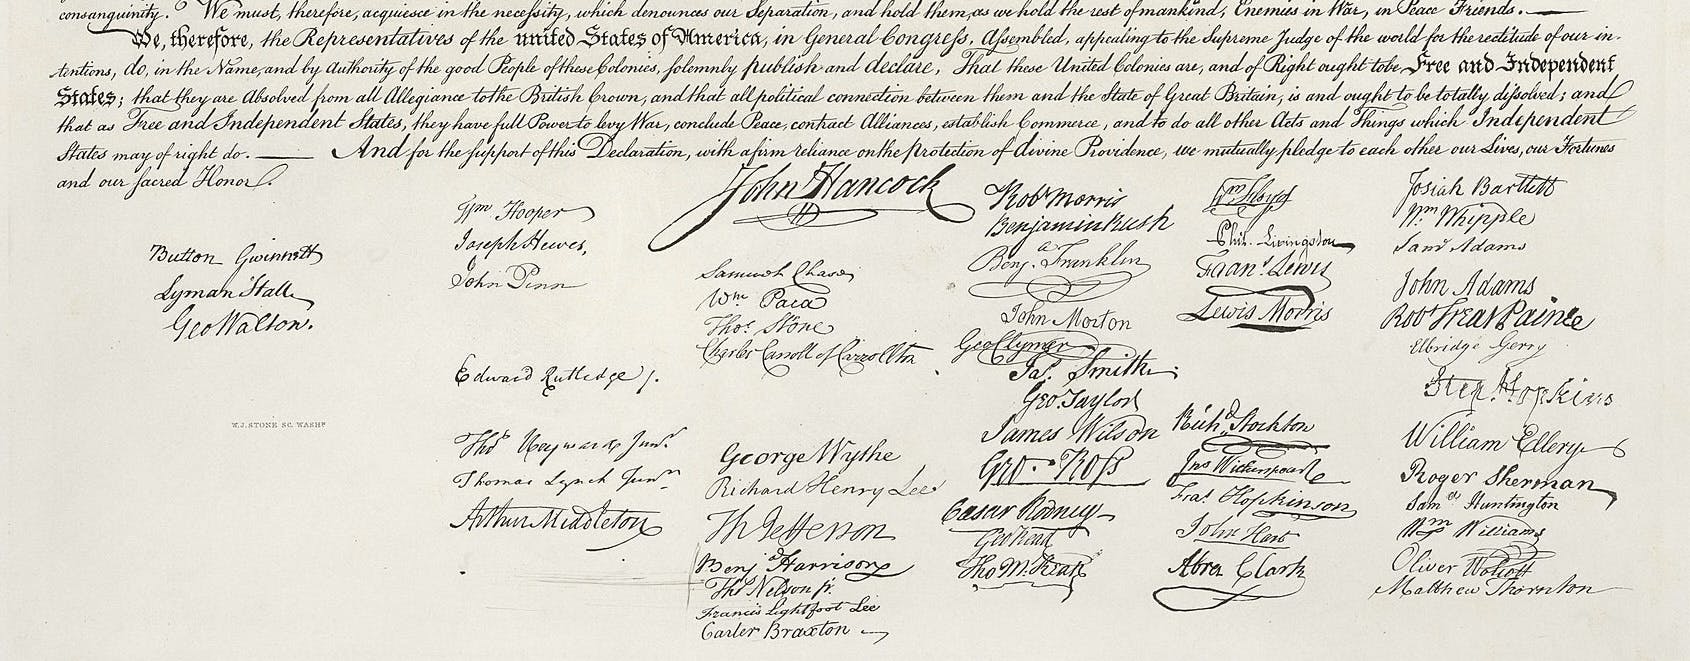 consanguinity. We must, therefore, acquiesce in the necessity, which denounces our Separation, and hold them, as we hold the rest of mankind, Enemies in War, in Peace Friends.
We, therefore, the Representatives of the united States of America, in General Congress, Assembled, appealing to the Supreme Judge of the world for the rectitude of our in-
tentions, do, in the Name, and by authority of the good People of these Colonies, solemnly publish and declare, That these United Colonies are, and of Right ought to be Free and Independent
States; that they are Absolved from all Allegiance to the British Crown, and that all political connection between them and the State of Great Britain, is and ought to be totally dissolved; and
that as Free and Independent States, they have full Power to levy War, conclude Peace, contract Alliances, establish Commerce, and to do all other Acts and Things which Independent
States may of right do. And for the support of this Declaration, with a firm reliance on the protection of divine Providence, we mutually pledge to each other our Lives, our Fortunes
and our sacred Honor.
Button Gwinnett
Lyman Hall
Geo Walton.
W.J. STONE SC. WASHN.
Wm Hooper
Joseph Hewes,
John Penn
Edward Rutledge /.
Thos Heyward Junr.
Thomas Lynch Junr.
Arthur Middleton
John Hancock
Samuel Chase
Wm Paca
Thos. Stone
Charles Carroll of Carrollton
George Wythe
Richard Henry Lee
Th Jefferson
Benj Harrison
Thos Nelson jr.
Francis Lightfoot Lee
Carter Braxton
Robt Morris
Benjamin Rush
Benja. Franklin
John Morton
Geo Clymer
Jas. Smith.
Geo. Taylor
James Wilson
Geo. Ross
Caesar Rodney
Geo Read
Tho M:Kean
Wm Floyd
Phil. Livingston
Frans. Lewis
Lewis Morris
Richd. Stockton
Jno Witherspoon
Fras. Hopkinson
John Hart
Abra Clark
Josiah Bartlett
Wm Whipple
Saml Adams
John Adams
Robt Treat Paine
Elbridge Gerry
Step. Hopkins
William Ellery
Roger Sherman
Saml Huntington
Wm Williams
Oliver Wolcott
Matthew Thornton